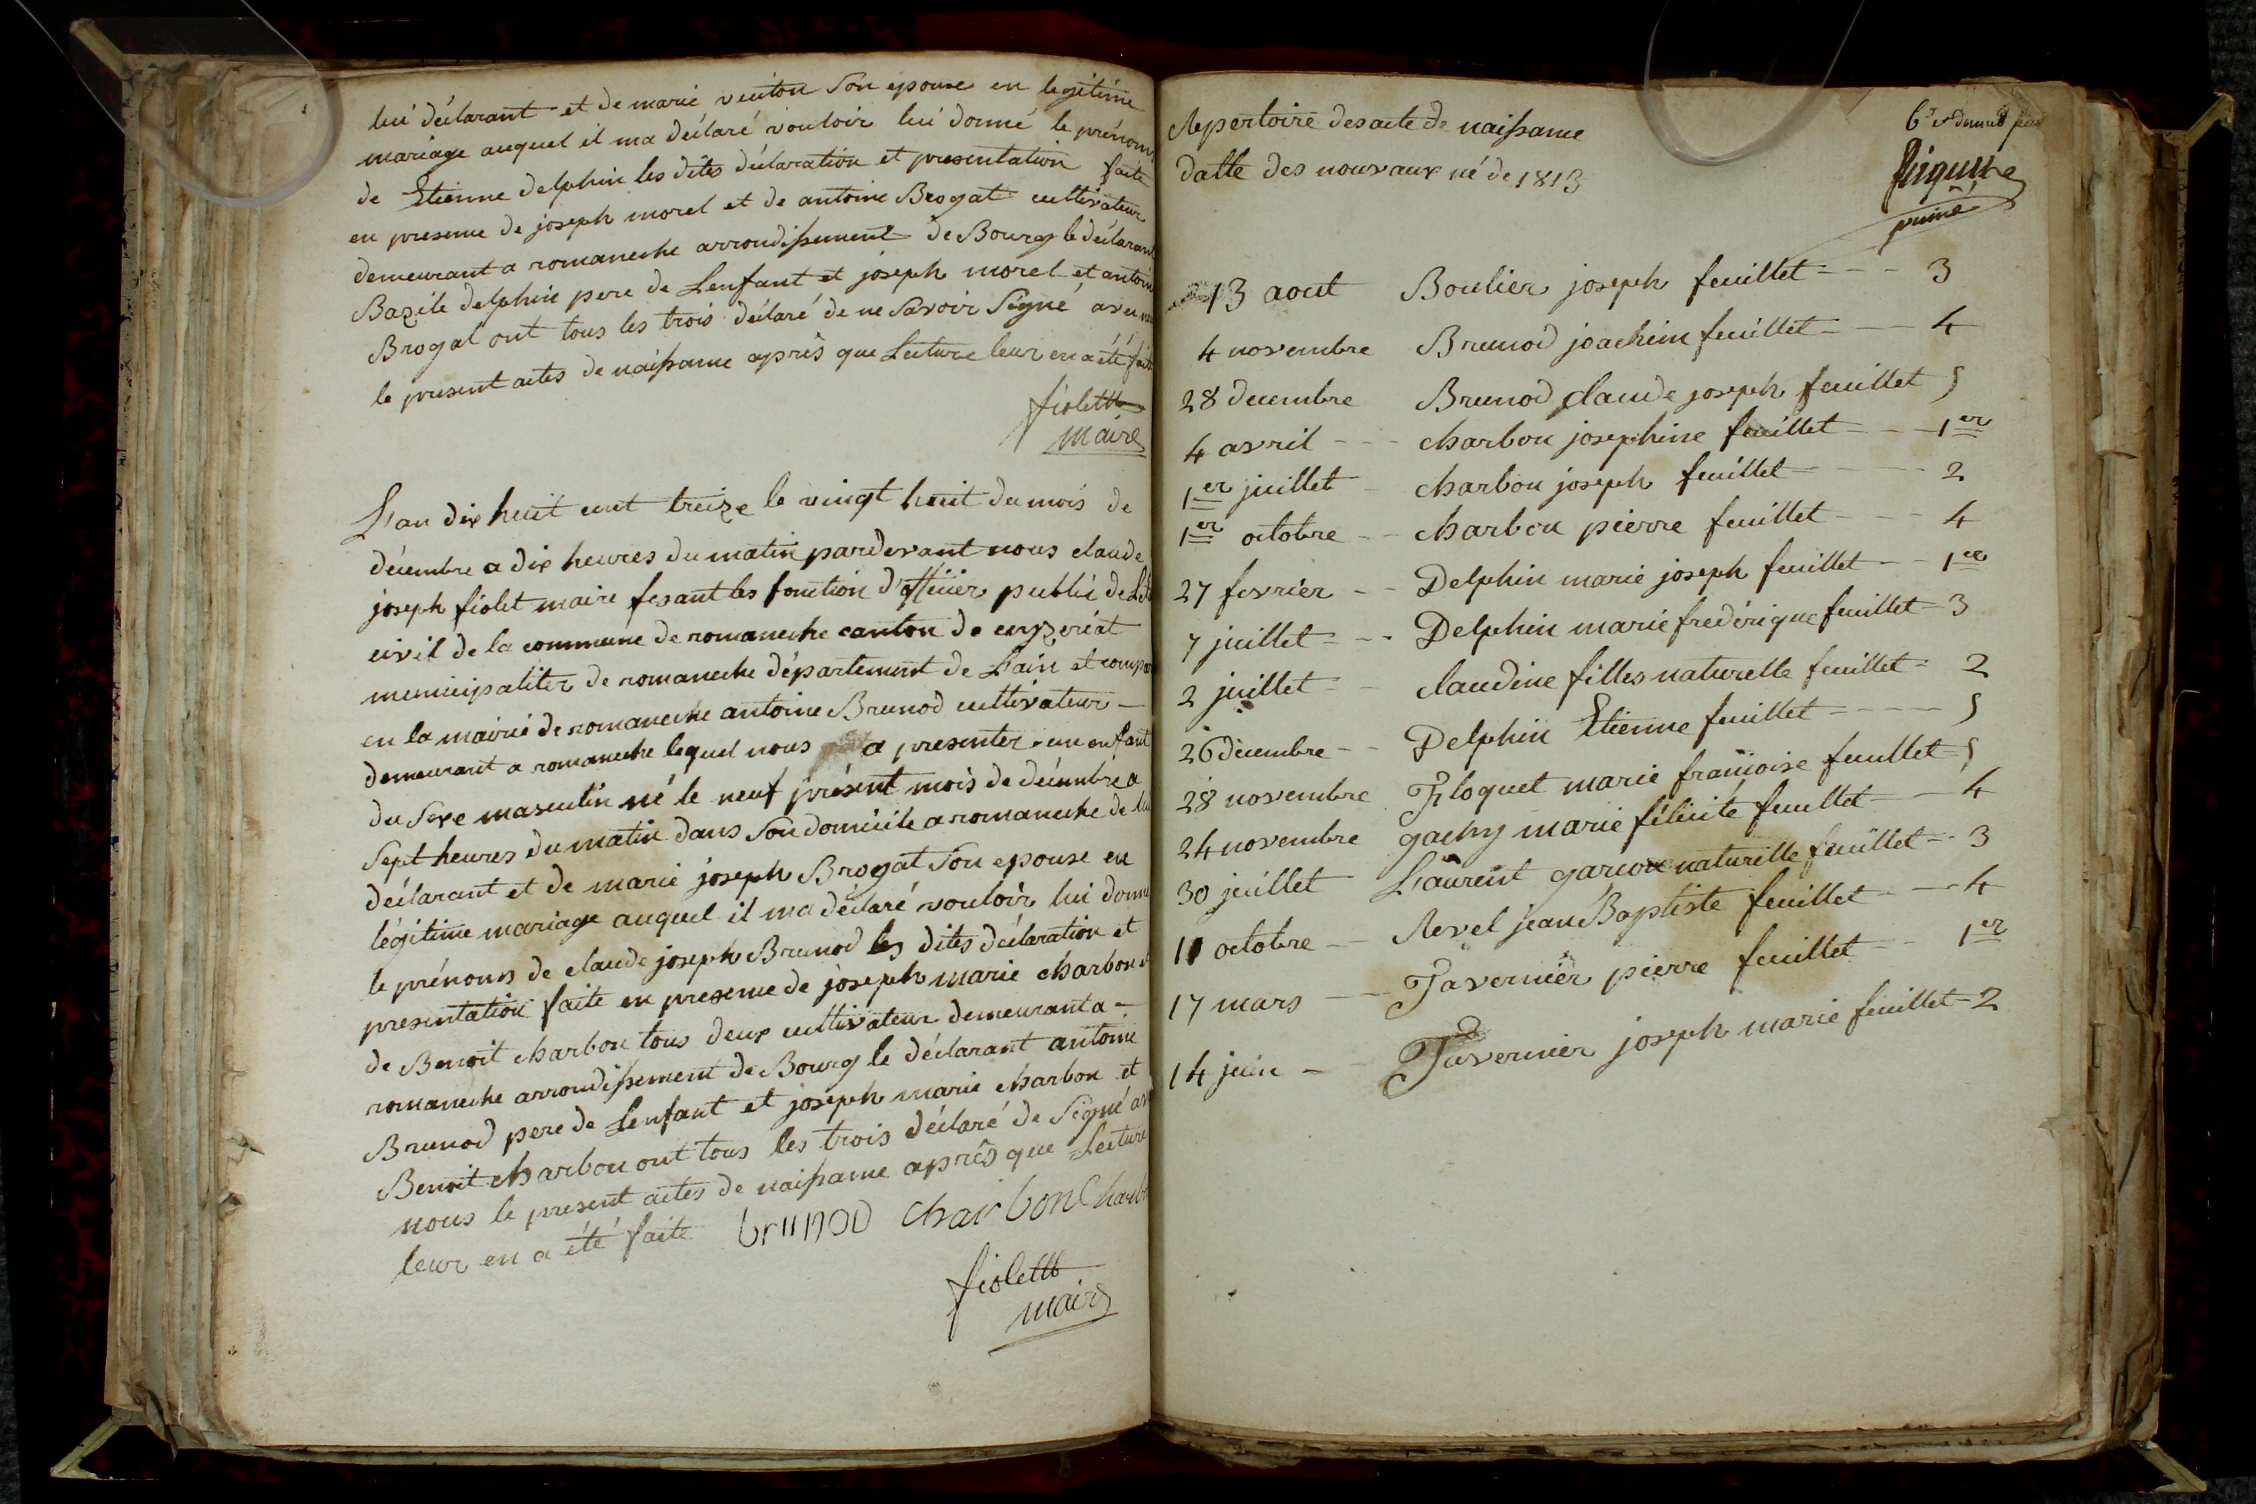 lui déclarant et de marie veuton son epouse en legitime
mariage auquel il ma déclaré vouloir lui donné le prénom
de Etienne delphin les dites déclaration et presentation faite
en presence de joseph morel et de antoine Brogat cultivateur
demeurant a romaneche arrondissement de Bourg le déclarant
Bazile delphin pere de Lenfant et joseph morel et antoin
Brogat ont tous les trois déclaré de ne savoir signé avec
le present actes de naissance après que Lecture leur en a été faite
fiolet
maire
L'an dix huit cent treize le vingt huit du mois de
décembre a dix heures du matin pardevant nous claude
joseph fiolet maire fesant les fonction d'officier public de
civil de la commune de romaneche canton de ceyzeriat
municipaliter de romaneche département de L'ain et compa
en la mairie de romaneche antoine Brunod cultivateur
demeurant a romaneche lequel nous a presenter un enfant
du sexe masculin né le neuf présent mois de décembre a
sept heures du matin dans son domicile a romaneche de lui
déclarant et de marie joseph Brogat son epouse en
légitime mariage auquel il ma déclaré vouloir lui donne
le prénoms de claude joseph Brunod les dites déclaration et
presentation faite en presence de joseph marie charbon et
de Benoit charbon tous deux cultivateur demeurant a
romaneche arrondissement de Bourg le déclarant antoine
Brunod pere de Lenfant et joseph marie charbon et
Benoit charbon ont tous les trois déclaré de signé av
nous le present actes de naissance après que Lecture
leur en a été faite brunod charbon Charb
fiolet
maire
Repertoire des acte de naissance
datte des nouvaux né de 1813
6e et dernie
13 aout Boulier joseph feuillet 3
4 novembre Brunod joachim feuillet 4
28 decembre Brunod claude joseph feuillet 5
4 avril charbon josephine feuillet 1er
1er juillet charbon joseph feuillet 2
1er octobre charbon pierre feuillet 4
27 fevrier Delphin marie joseph feuillet 1er
7 juillet Delphin marie frederique feuillet 3
2 juillet claudine filles naturelle feuillet 2
26 décembre Delphin Etienne feuillet 5
28 novembre Floquet marie francoise feuillet 5
24 novembre gachy marie félicité feuillet 4
30 juillet Laurent garcon naturelle feuillet 3
11 octobre Revel jean Baptiste feuillet 4
17 mars Tavernier pierre feuillet 1er
14 juin Tavernier joseph marie feuillet 2